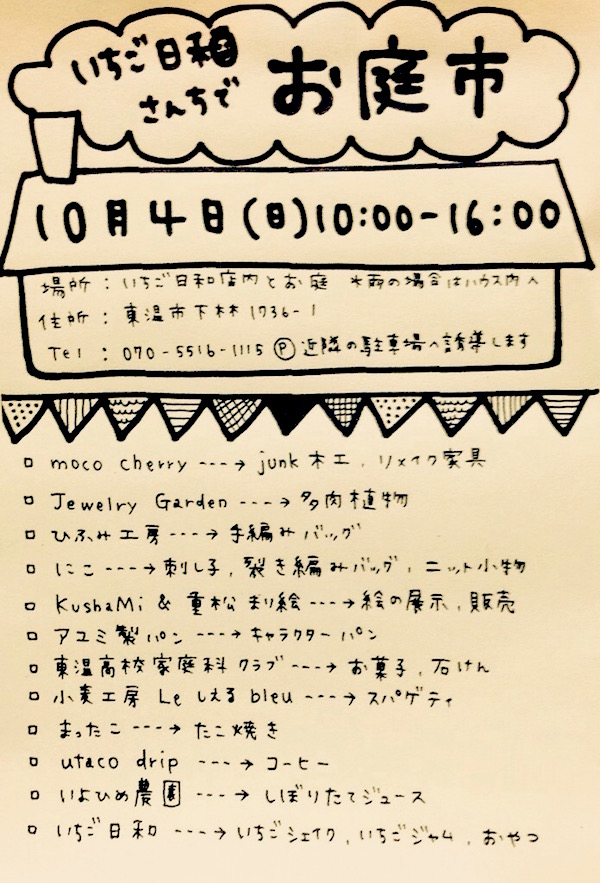 いちご日和
さんちで
お庭市
10月4日(日)10:00-16:00
場所 : いちご日和店内とお庭 *雨の場合はハウス内へ
住所 : 東温市下林1736-1
Tel : 070-5516-1115 Ⓟ近隣の駐車場へ誘導します
□ moco cherry ---→ junk木工, リメイク家具
□ Jewelry Garden ---→ 多肉植物
□ ひふみ工房 ---→ 手編みバッグ
□ にこ ---→ 刺し子, 裂き編みバッグ, ニット小物
□ KushaMi & 重松まり絵 ---→ 絵の展示, 販売
□ アユミ製パン ---→ キャラクターパン
□ 東温高校家庭科クラブ ---→ お菓子, 石けん
□ 小麦工房 Le しえる bleu ---→ スパゲティ
□ まったこ ---→ たこ焼き
□ utaco drip ---→ コーヒー
□ いよひめ農園 ---→ しぼりたてジュース
□ いちご日和 ---→ いちごシェイク, いちごジャム, おやつ